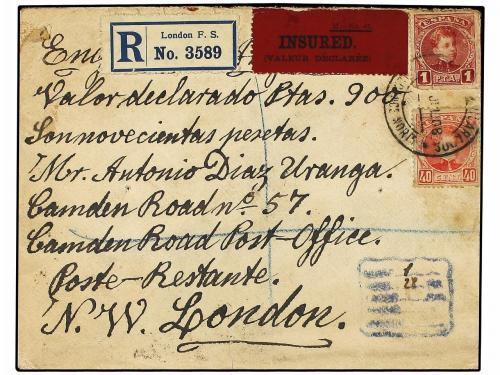 R London F. S. No. 3589
INSURED.
(VALEUR DÉCLARÉE)
ESPAÑA
1 PTA. 1
ESPAÑA
40 CENT. 40
Valor declarado Ptas. 900
Son novecientas pesetas.
Mr. Antonio Diaz Uranga.
Camden Road nº 57.
Camden Road Post-Office.
Poste-Restante.
N.W. London.
1
28